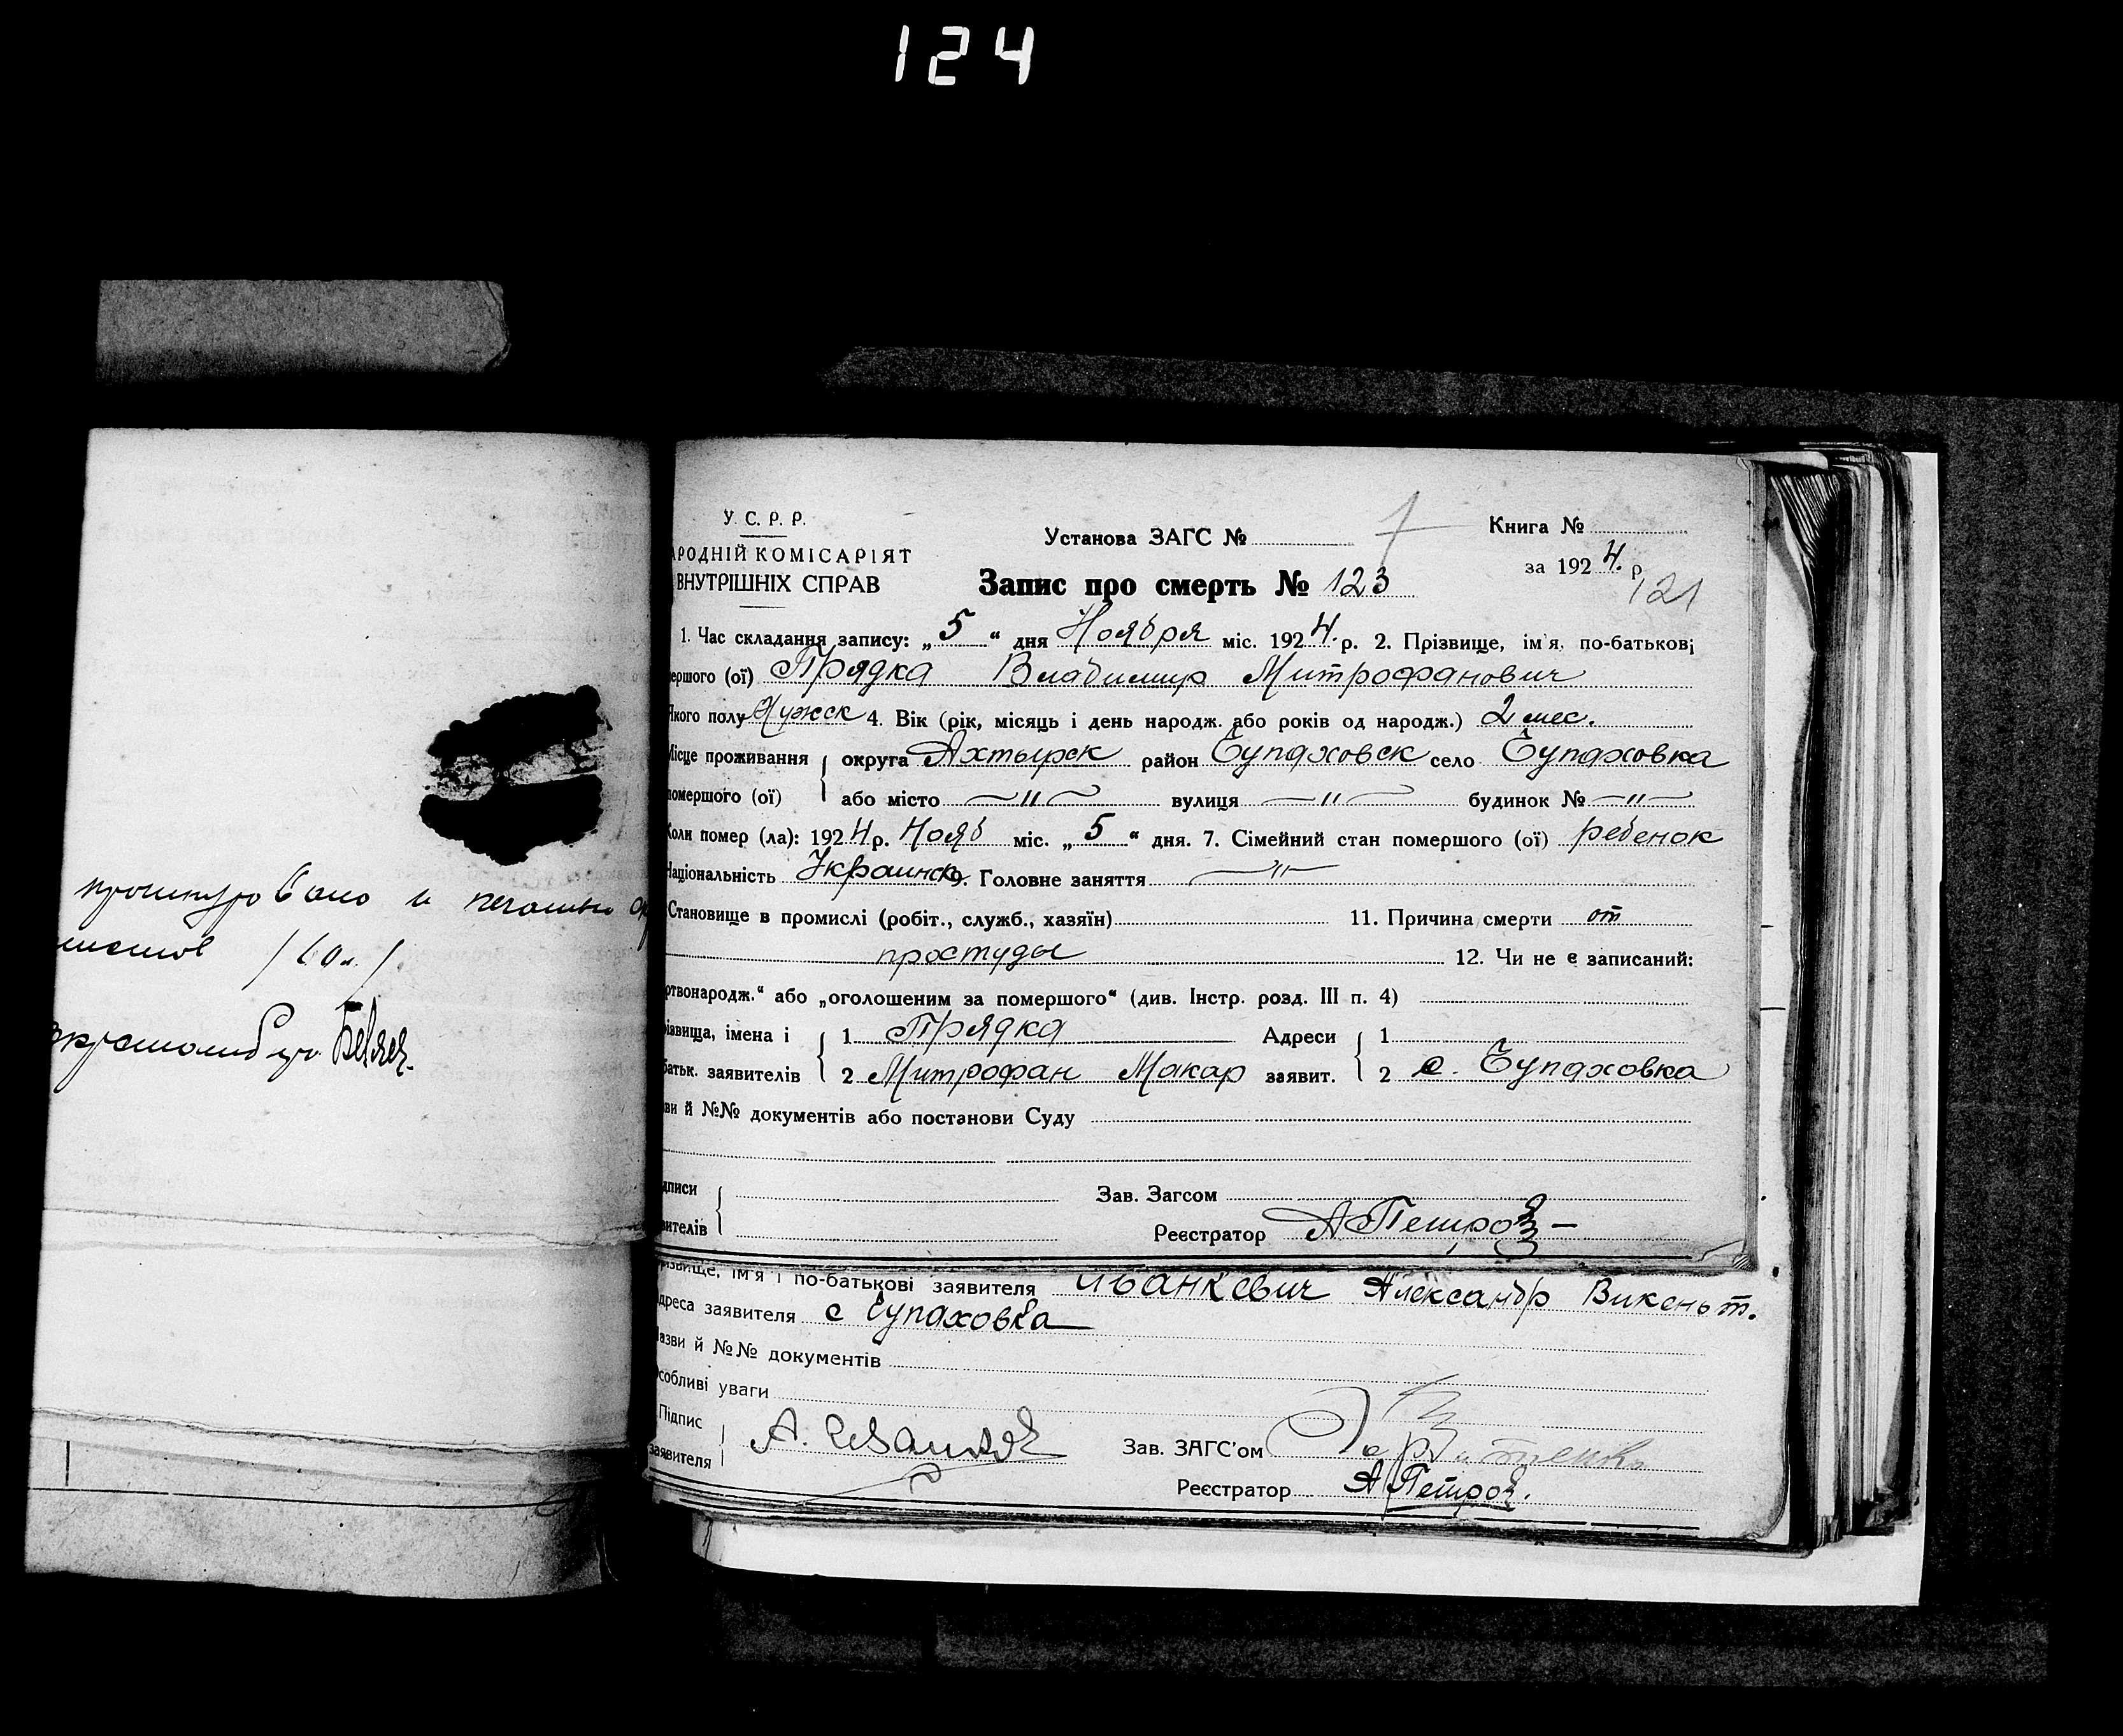 124
прошнуровано и печатью
листов /60л./
У. С. Р. Р.
АРОДНІЙ КОМІСАРІЯТ
ВНУТРІШНІХ СПРАВ
Установа ЗАГС №
Книга №
за 1924. р
Запис про смерть № 123
121
1. Час складання запису: „5“ дня Ноября міс. 1924. р. 2. Прізвище, ім'я, по-батькові
ершого (ої) Прядка Владимир Митрофанович
Якого полу Мужск 4. Вік (рік, місяць і день народж. або років од народж.) 2 мес.
Місце проживання округа Ахтырск район Чупаховск село Чупаховка
помершого (ої) або місто —"— вулиця —"— будинок № —"—
Коли помер (ла): 1924 р. Нояб міс. „5“ дня. 7. Сімейний стан помершого (ої) ребенок
Національність Украинск 9. Головне заняття —"—
Становище в промислі (робіт., служб., хазяїн) 11. Причина смерти от
простуды 12. Чи не є записаний:
ртвонародж.“ або „оголошеним за помершого“ (див. Інстр. розд. III п. 4)
ізвища, імена і 1 Прядка Адреси 1
батьк. заявителів 2 Митрофан Макар заявит. 2 с. Чупаховка
ви й №№ документів або постанови Суду
дписи Зав. Загсом
вителів Реєстратор АПетров
різвище, ім'я і по-батькові заявителя Иванкевич Александр Викеньт.
дреса заявителя с Чупаховка
азви й №№ документів
собливі уваги
Підпис
заявителя А. Иванкев Зав. ЗАГС'ом
Реєстратор А Петров.